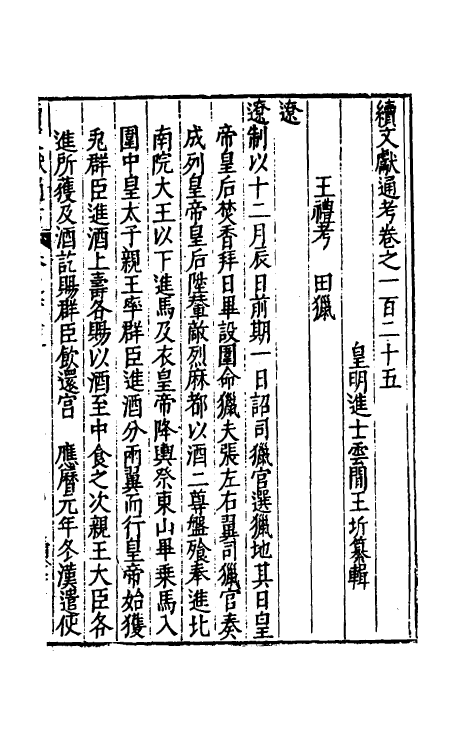 續文獻通考卷之一百二十五
皇明進士雲間王圻纂輯
王禮考　田獵
遼
遼制以十二月辰日前期一日詔司獵官選獵地其日皇
帝皇后焚香拜日畢設圍命獵夫張左右翼司獵官奏
成列皇帝皇后陞輦敵烈麻都以酒二尊盤飱奉進北
南院大王以下進馬及衣皇帝降輿祭東山畢乗馬入
圍中皇太子親王率群臣進酒分兩翼而行皇帝始獲
兎群臣進酒上壽各賜以酒至中食之次親王大臣各
進所獲及酒訖賜群臣飲還宫　應曆元年冬漢遣使